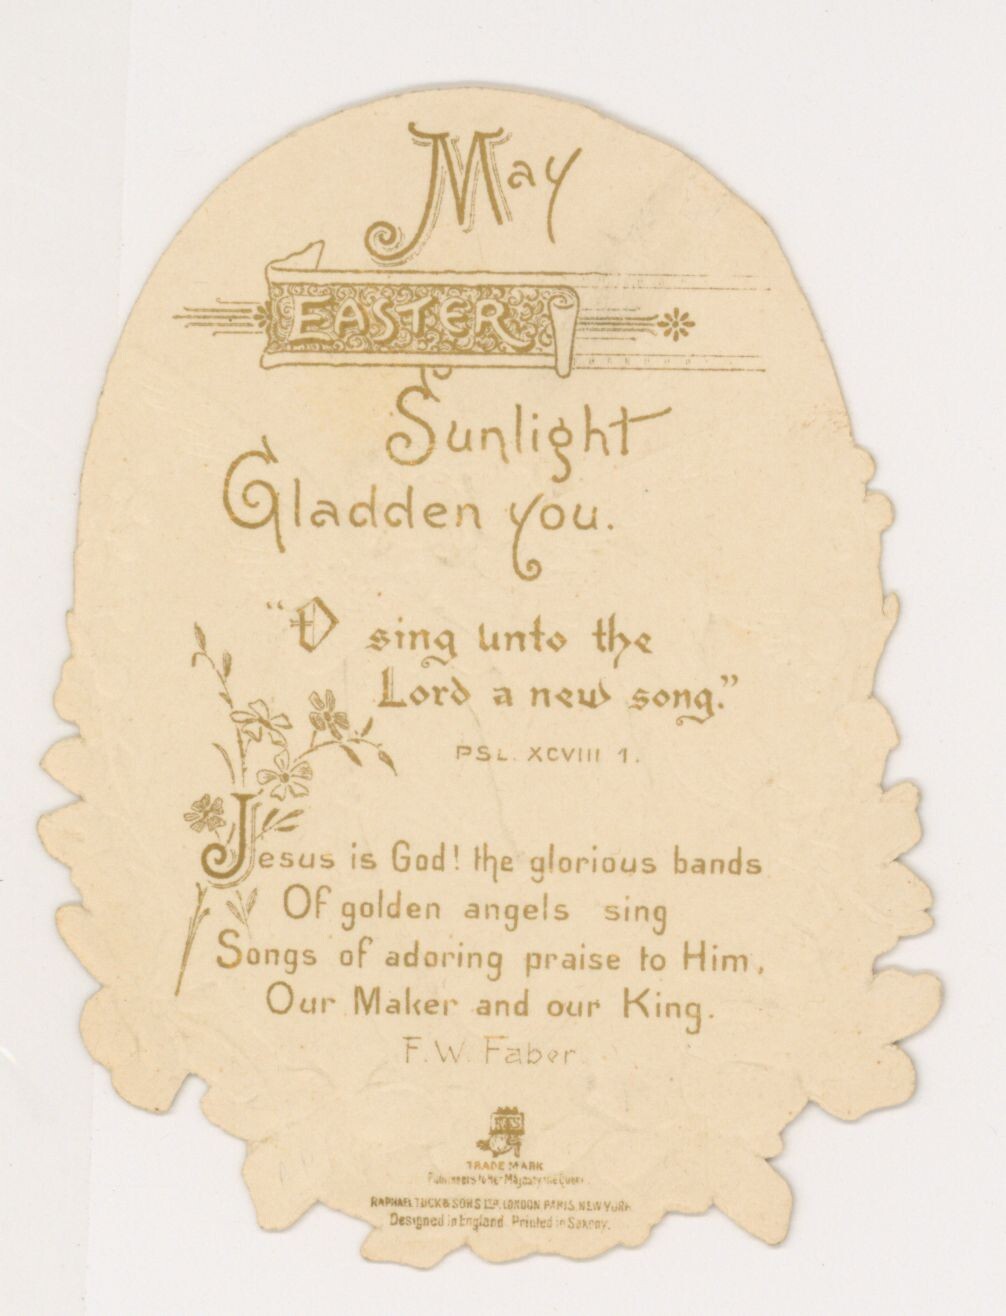 May
EASTER
Sunlight
Gladden you.
"O sing unto the
Lord a new song."
PSL. XCVIII 1.
Jesus is God! the glorious bands
Of golden angels sing
Songs of adoring praise to Him,
Our Maker and our King.
F. W. Faber.
TRADE MARK
Publishers to Her Majesty the Queen.
RAPHAEL TUCK & SONS LTD. LONDON PARIS. NEW YORK
Designed in England. Printed in Saxony.